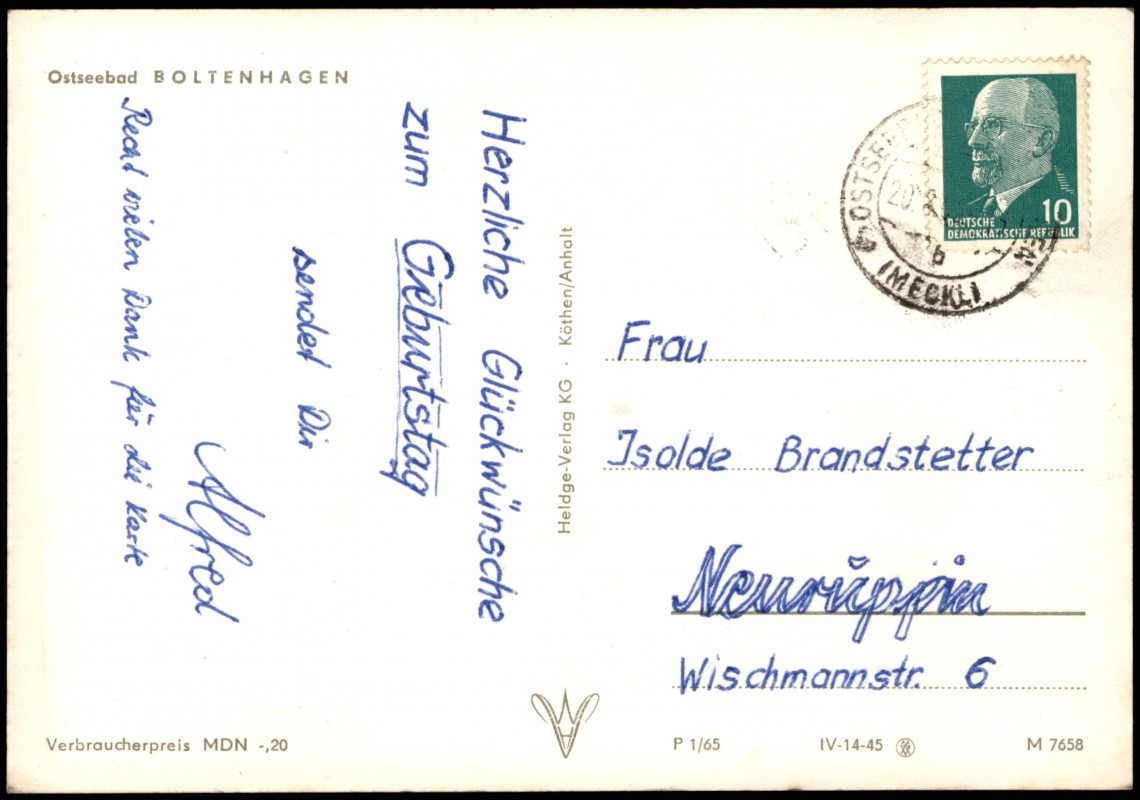 Ostseebad BOLTENHAGEN
Herzliche Glückwünsche
zum Geburtstag
sendet Dir
Alfred
Recht vielen Dank für die Karte
Heldge-Verlag KG · Köthen/Anhalt
10
DEUTSCHE
DEMOKRATISCHE REPUBLIK
b
(MECKL)
Frau
Isolde Brandstetter
Neuruppin
Wischmannstr. 6
Verbraucherpreis MDN -,20
P 1/65 IV-14-45 M 7658